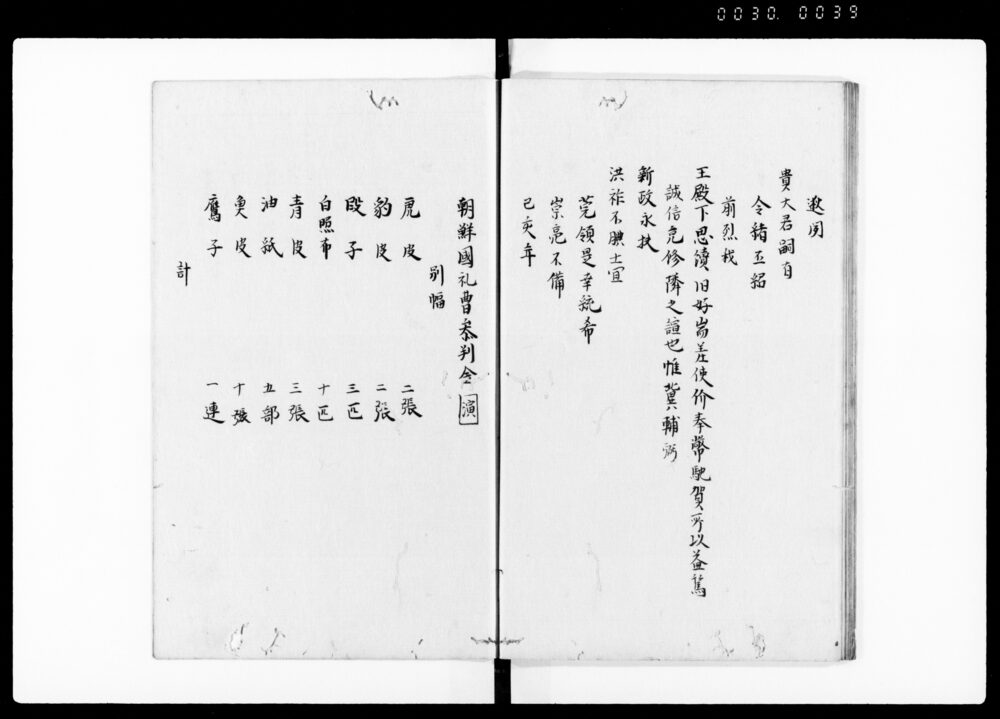 0030. 0039
逖閔
貴大君嗣有
令緒丕紹
前烈我
王殿下思續旧好耑差使价奉幣馳賀所以益篤
誠信克修隣之誼也惟冀輔弼
新政永扶
洪祚不腆土宜
莞領是幸統希
崇亮不備
己亥年
朝鮮國礼曹参判金演
別幅
虎皮 二張
豹皮 二張
段子 三匹
白照布 十匹
青皮 三張
油紙 五部
魚皮 十張
鷹子 一連
計